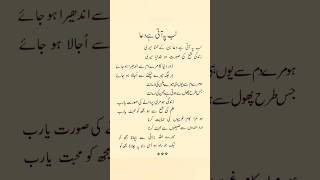 لب پہ آتی ہے دعا
لب پہ آتی ہے دعا بن کے تمنا میری
زندگی شمع کی صورت ہو خدایا میری
دور دنیا کا مرے دم سے اندھیرا ہو جائے
ہر جگہ میرے چمکنے سے اجالا ہو جائے
ہو مرے دم سے یوں ہی
جس طرح پھول سے ہوتی ہے چمن کی زینت
زندگی ہو مری پروانے کی صورت یارب
علم کی شمع سے ہو مجھ کو محبت یارب
ہو مرا کام غریبوں کی حمایت کرنا
درد مندوں سے ضعیفوں سے محبت کرنا
مرے اللہ برائی سے بچانا مجھ کو
نیک جو راہ ہو اس رہ پہ چلانا مجھ کو
سے اندھیرا ہو جائے
سے اُجالا ہو جائے
ہو مرے دم سے یوں ہی
جس طرح پھول سے ہو
کی صورت یارب
مجھ کو محبت یارب